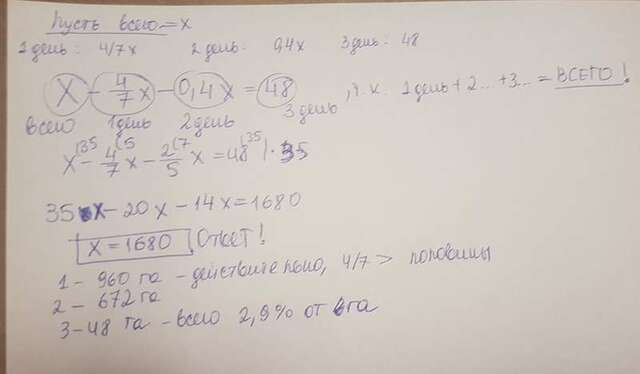 Пусть всего = x
1 день: 4/7x 2 день: 0,4x 3 день: 48
x - 4/7 x - 0,4x = 48, т.к. 1 день + 2... + 3... = ВСЕГО!
всего 1 день 2 день 3 день
x - 4/7 x - 2/5 x = 48 |· 35
35x - 20x - 14x = 1680
x = 1680 Ответ!
1 - 960 га - действительно, 4/7 > половины
2 - 672 га
3 - 48 га - всего 2,9% от га